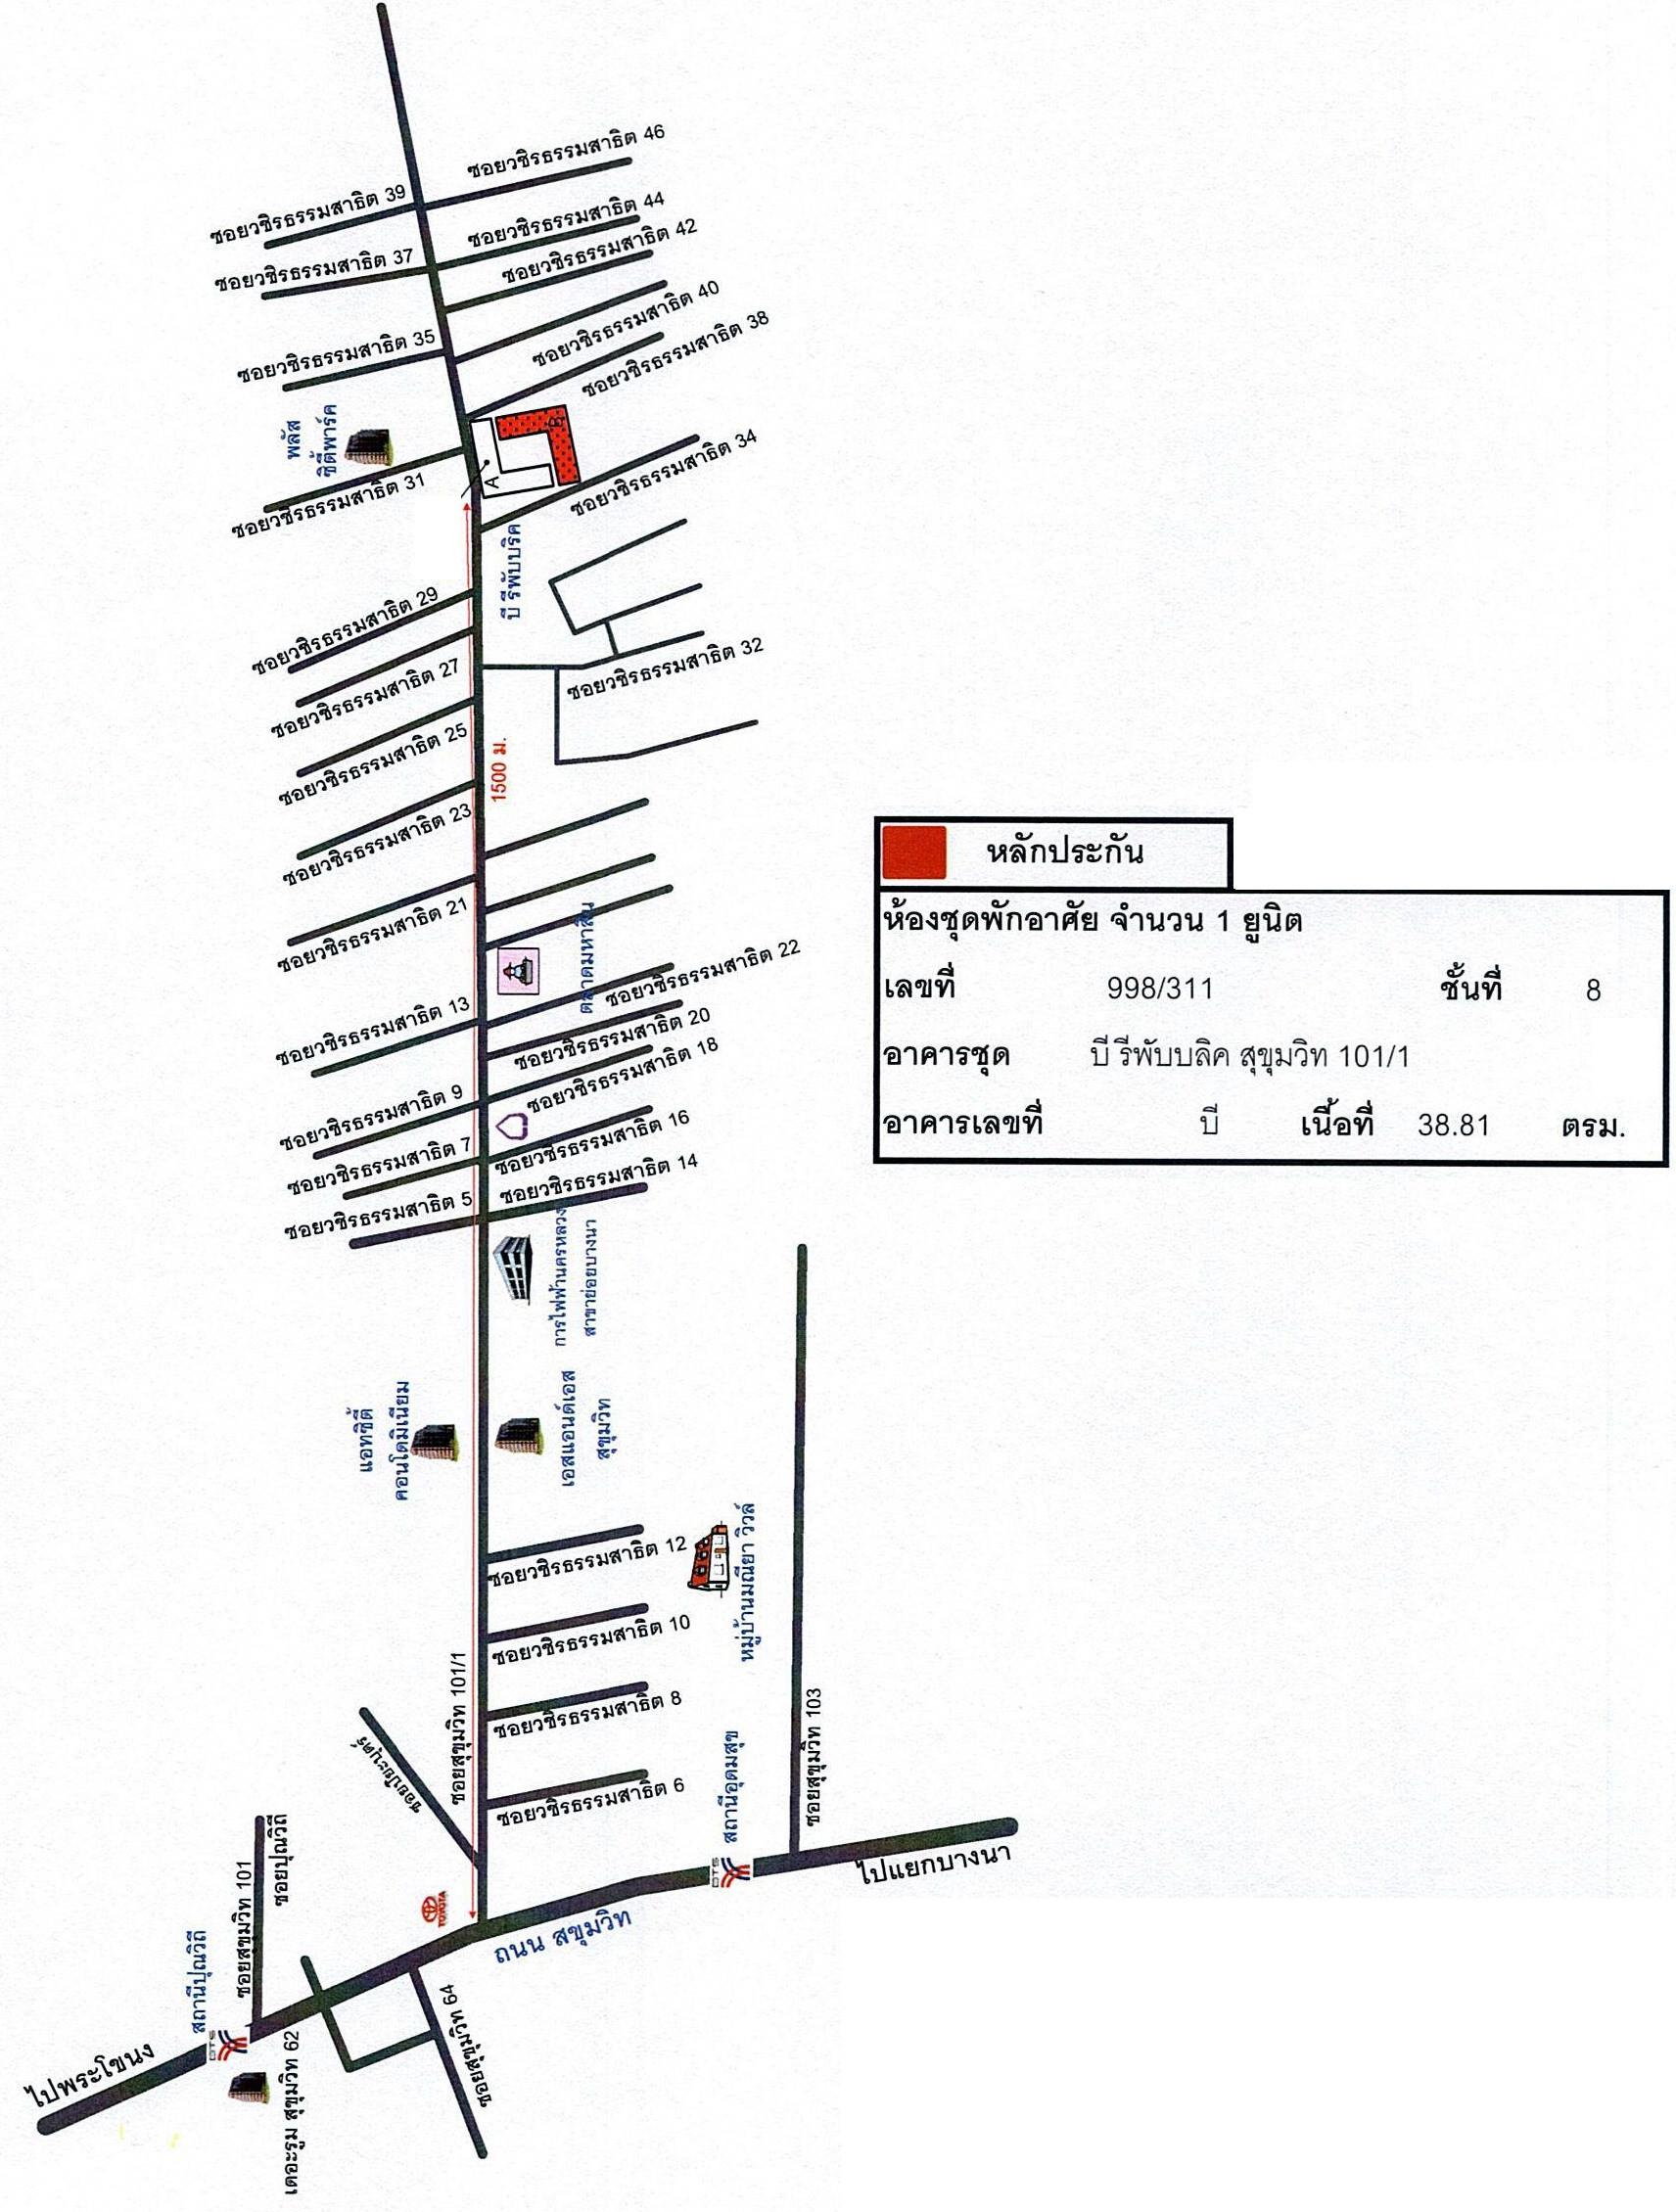 ซอยวชิรธรรมสาธิต 46
ซอยวชิรธรรมสาธิต 39
ซอยวชิรธรรมสาธิต 44
ซอยวชิรธรรมสาธิต 42
ซอยวชิรธรรมสาธิต 37
ซอยวชิรธรรมสาธิต 40
ซอยวชิรธรรมสาธิต 38
ซอยวชิรธรรมสาธิต 35
พลัส
ซิตี้พาร์ค
A
B
ซอยวชิรธรรมสาธิต 34
ซอยวชิรธรรมสาธิต 31
บี รีพับบริค
ซอยวชิรธรรมสาธิต 29
ซอยวชิรธรรมสาธิต 27
ซอยวชิรธรรมสาธิต 32
ซอยวชิรธรรมสาธิต 25
1500 ม.
ซอยวชิรธรรมสาธิต 23
ซอยวชิรธรรมสาธิต 21
ตลาดมหาสิน
ซอยวชิรธรรมสาธิต 22
ซอยวชิรธรรมสาธิต 13
ซอยวชิรธรรมสาธิต 20
ซอยวชิรธรรมสาธิต 18
ซอยวชิรธรรมสาธิต 9
ซอยวชิรธรรมสาธิต 7
ซอยวชิรธรรมสาธิต 16
ซอยวชิรธรรมสาธิต 14
ซอยวชิรธรรมสาธิต 5
การไฟฟ้านครหลวง
สาขาย่อยบางนา
แอทซิตี้
คอนโดมิเนียม
เอสแอนด์เอส
สุขุมวิท
ซอยวชิรธรรมสาธิต 12
หมู่บ้านมณียา วิวล์
ซอยวชิรธรรมสาธิต 10
ซอยสุขุมวิท 101/1
ซอยวชิรธรรมสาธิต 8
ซอยปิยะบุตร์
ซอยวชิรธรรมสาธิต 6
สถานีอุดมสุข
ซอยสุขุมวิท 103
BTS
ไปแยกบางนา
ซอยสุขุมวิท 101
ซอยปุณวิถี
TOYOTA
ถนน สุขุมวิท
สถานีปุณวิถี
BTS
ไปพระโขนง
เดอะรูม สุขุมวิท 62
ซอยสุขุมวิท 64
หลักประกัน
ห้องชุดพักอาศัย จำนวน 1 ยูนิต
เลขที่ 998/311 ชั้นที่ 8
อาคารชุด บี รีพับบลิค สุขุมวิท 101/1
อาคารเลขที่ บี เนื้อที่ 38.81 ตรม.